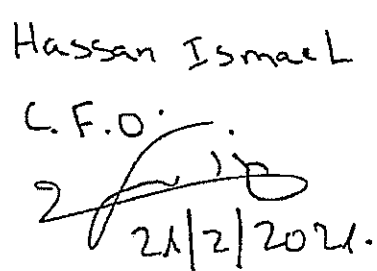 Hassan Ismael
C.F.O.
21/2/2021.